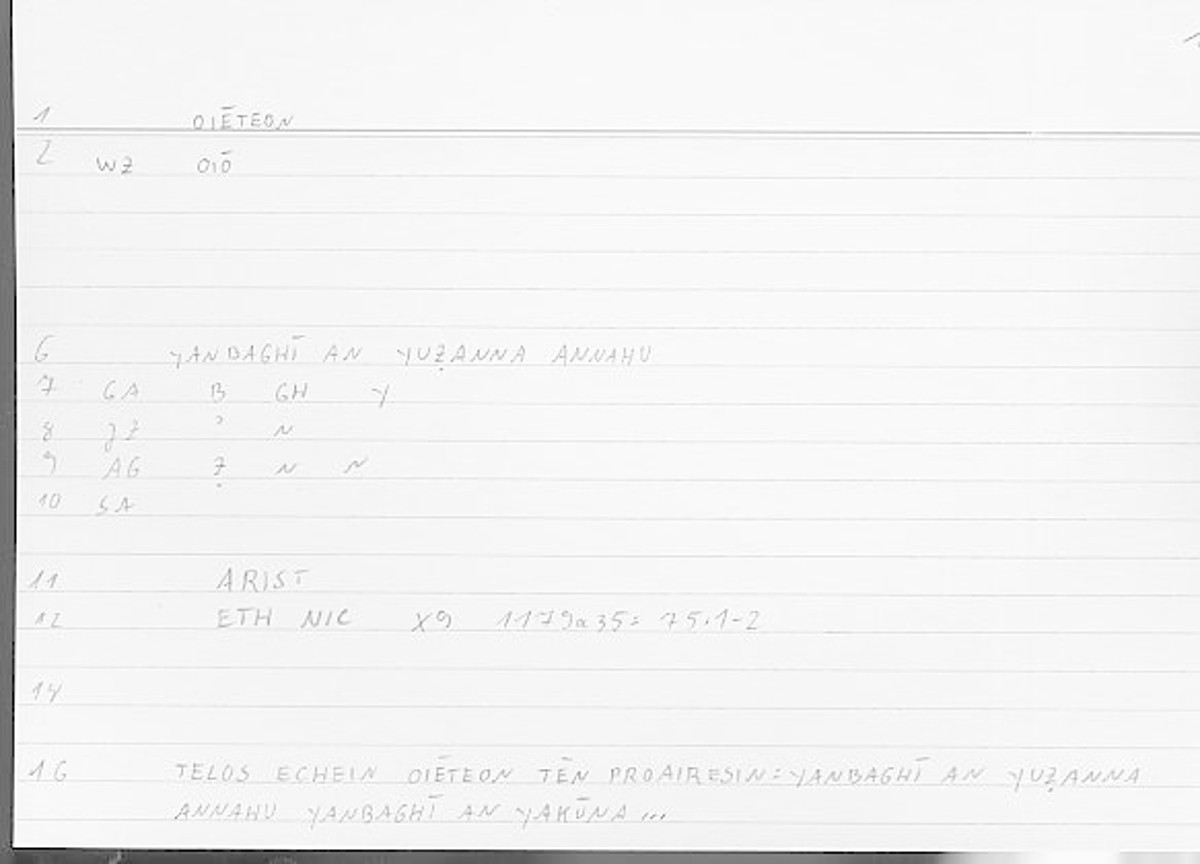 1 OIĒTEON
2 WZ OIŌ
6 YANBAGHĪ AN YUẒANNA ANNAHU
7 GA B GH Y
8 JZ ʾ N
9 AG Ẓ N N
10 SA
11 ARIST
12 ETH NIC X9 1179a35= 75.1-2
14
16 TELOS ECHEIN OIĒTEON TĒN PROAIRESIN: YANBAGHĪ AN YUẒANNA
ANNAHU YANBAGHĪ AN YAKŪNA ...